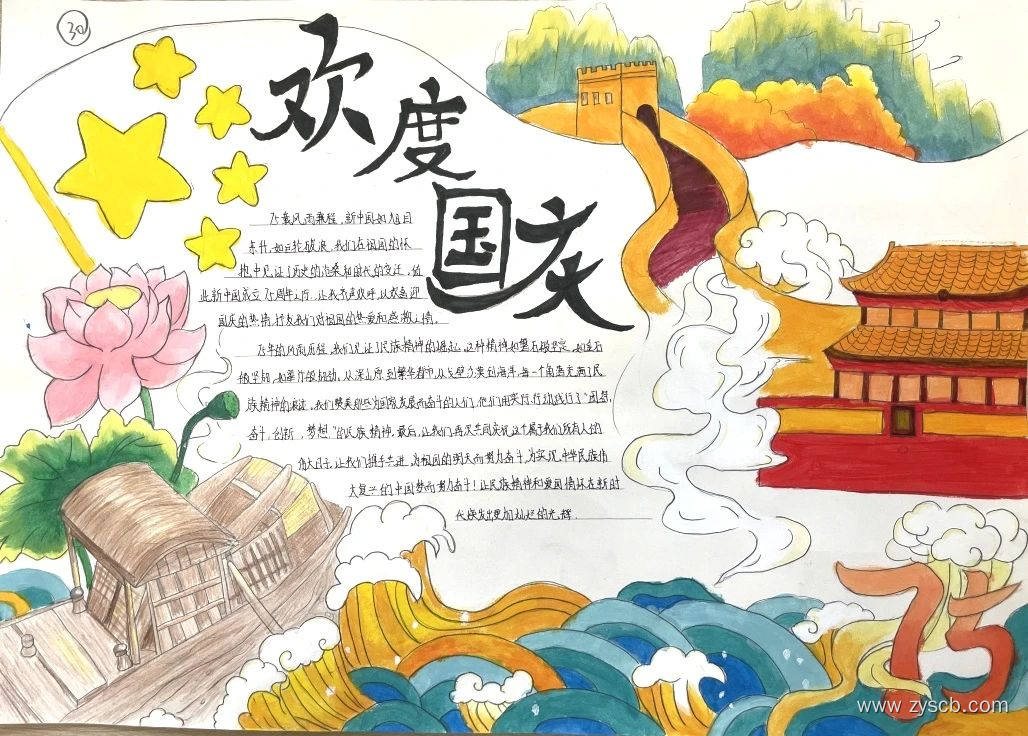 30
欢度国庆
75载风雨兼程，新中国如旭日
东升，如巨轮破浪，我们在祖国的怀
抱中见证了历史的沧桑和时代的变迁，值
此新中国成立75周年之际，让我
国庆的热情，抒发我们对祖国的热爱和感激之情。
75年的风雨历程，我们见证了民族精神的崛起，这种精神如磐石般坚定，如
从深山到繁华都市，从戈壁沙漠到海洋，每一个角落充满了民
族精神的痕迹，我们赞美那些为国家发展而奋斗的人们，他们用实际行动践行了“团结，
奋斗，创新，梦想”的民族精神，最后，让我们再次共同庆祝这个属于我们所有人的
伟大日子，让我们携手共进，为祖国的明天而努力奋斗，为实现中华民族伟
大复兴的中国梦而努力奋斗！让民族精神和爱国情怀在新时
代焕发出更加灿烂的光辉．
75
www.zyscb.com